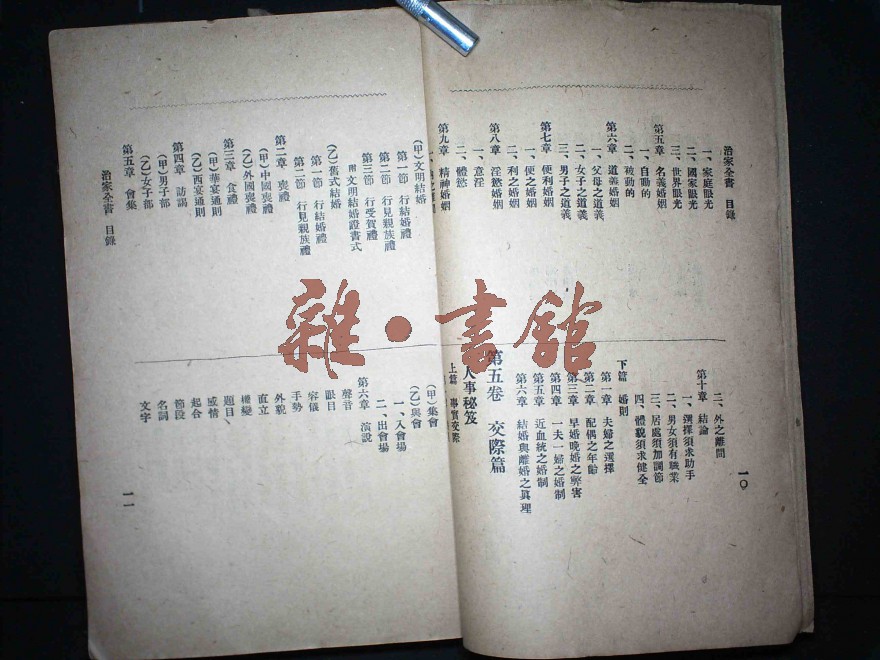 治家全書 目錄
一、家庭眼光
二、國家眼光
三、世界眼光
第五章 名義婚姻
一、自動的
二、被動的
第六章 道義婚姻
一、父母之道義
二、女子之道義
三、男子之道義
第七章 便利婚姻
一、便之婚姻
二、利之婚姻
第八章 淫慾婚姻
一、意淫
二、體慾
第九章 精神婚姻
二、外之離間
第十章 結論
一、選擇須求助手
二、男女須有職業
三、居處須加調節
四、體貌須求健全
下篇 婚則
第一章 夫婦之選擇
第二章 配偶之年齡
第三章 早婚晚婚之弊害
第四章 一夫一婦之婚制
第五章 近血統之婚制
第六章 結婚與離婚之眞理
第五卷 交際篇
人事秘笈
上篇 事實交際
一〇
(甲)文明結婚
第一節 行結婚禮
第二節 行見親族禮
第三節 行受賀禮
附 文明結婚證書式
(乙)舊式結婚
第一節 行結婚禮
第二節 行見親族禮
第二章 喪禮
(甲)中國喪禮
(乙)外國喪禮
第三章 食禮
(甲)華宴通則
(乙)西宴通則
第四章 訪謁
(甲)男子部
(乙)女子部
第五章 會集
治家全書 目錄
(甲)集會
(乙)與會
一、入會場
二、出會場
第六章 演說
聲音
眼目
容儀
手勢
外貌
直立
機變
題目
感情
起合
節段
名詞
文字
一一
雜·書館